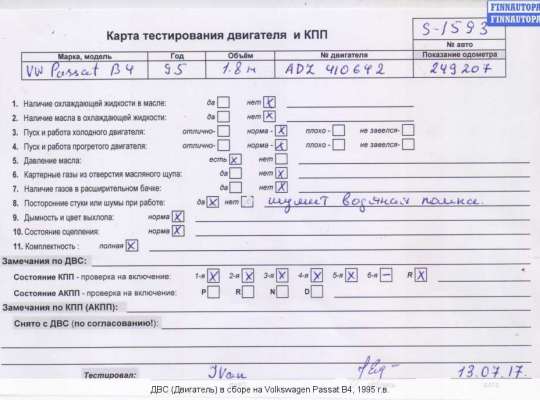 FINNAUTOPA
FINNAUTOPA
Карта тестирования двигателя и КПП
S-1593
№ авто
Марка, модель Год Объём № двигателя Показание одометра
VW Passat B4 95 1.8 м ADZ 410642 249207
1. Наличие охлаждающей жидкости в масле: да нет X
2. Наличие масла в охлаждающей жидкости: да нет X
3. Пуск и работа холодного двигателя: отлично- норма - X плохо - не завелся-
4. Пуск и работа прогретого двигателя: отлично- норма - X плохо - не завелся-
5. Давление масла: есть X нет
6. Картерные газы из отверстия масляного щупа: да нет X
7. Наличие газов в расширительном бачке: да нет X
8. Посторонние стуки или шумы при работе: да X нет шумит водяная помпа.
9. Дымность и цвет выхлопа: норма X
10. Состояние сцепления: норма X
11. Комплектность : полная X
Замечания по ДВС:
Состояние КПП - проверка на включение: 1-я X 2-я X 3-я X 4-я X 5-я X 6-я – R X
Состояние АКПП - проверка на включение: P R N D
Замечания по КПП (АКПП):
Снято с ДВС (по согласованию!):
Тестировал: IVan 13.07.17.
ДВС (Двигатель) в сборе на Volkswagen Passat B4, 1995 г.в.